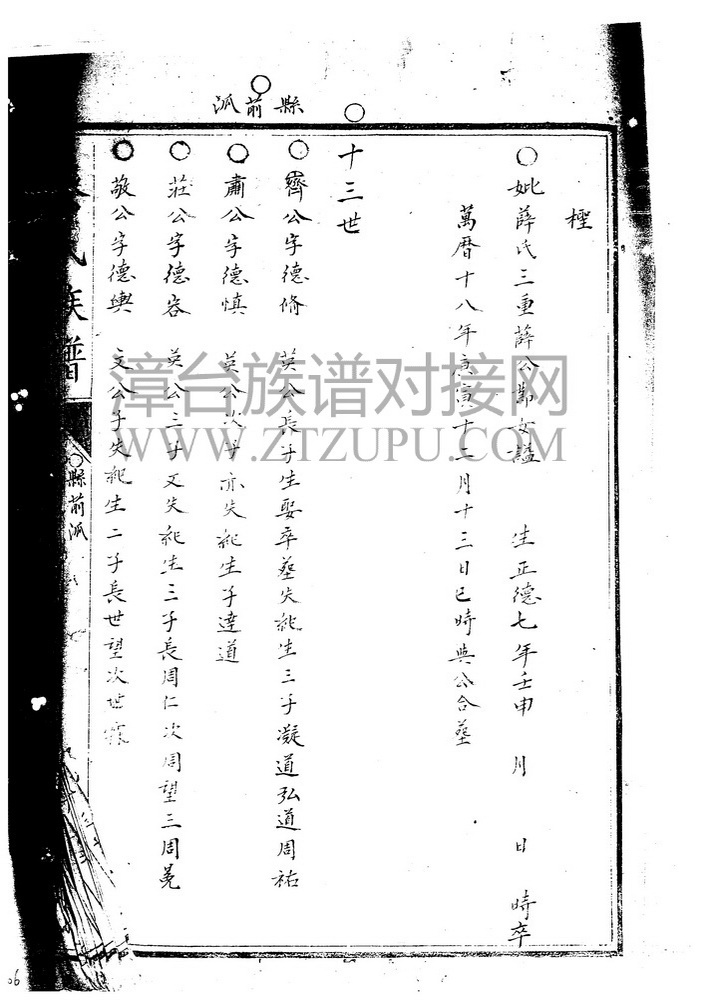 縣前派
樫
○妣薛氏三重薛公节女謚 生正德七年壬申 月 日 時卒
萬曆十八年庚寅十二月十三日巳時與公合塟
十三世
○齊公字德脩 英公長子生娶卒塟失紀生三子凝道弘道周祐
○肅公字德慎 英公次子亦失紀生子達道
○莊公字德容 英公三子又失紀生三子長周仁次周望三周冕
○敬公字德輿 文公子失紀生二子長世望次世
氏族譜
○縣前派
漳台族谱对接网
WWW.ZTZUPU.COM
06